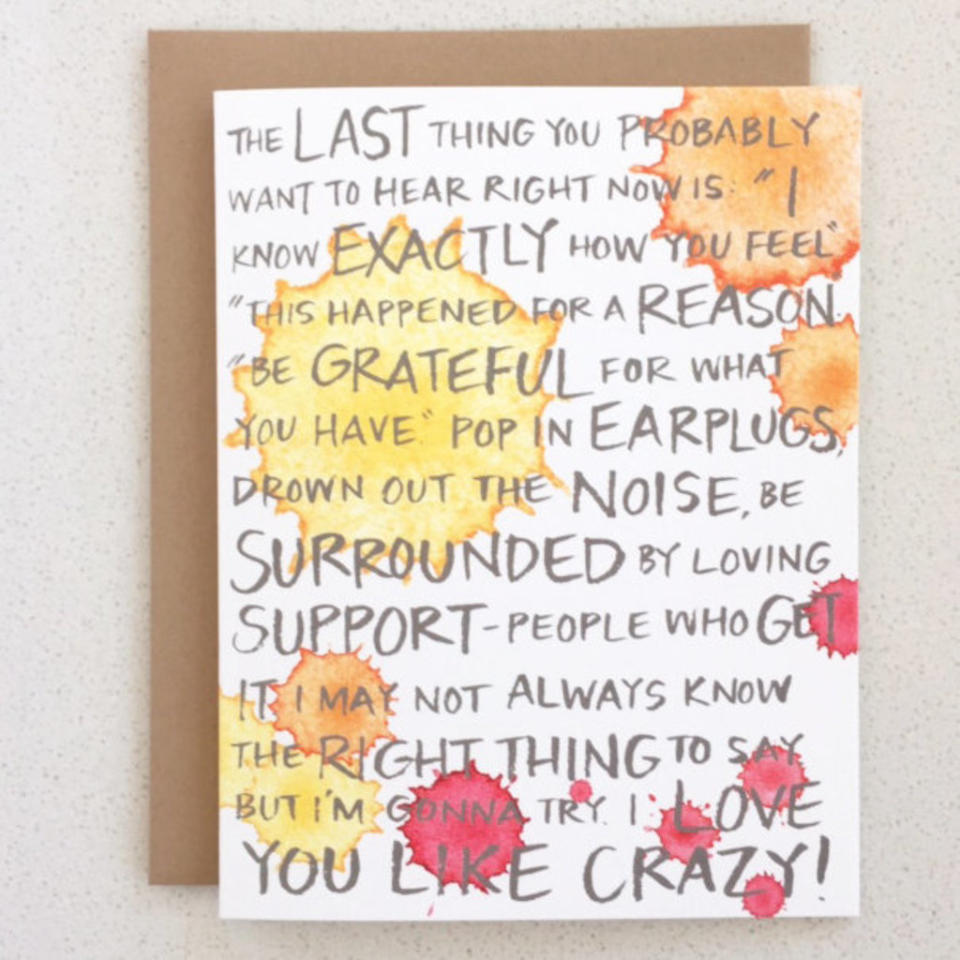 THE LAST THING YOU PROBABLY
WANT TO HEAR RIGHT NOW IS: "I
KNOW EXACTLY HOW YOU FEEL"
"THIS HAPPENED FOR A REASON.
"BE GRATEFUL FOR WHAT
YOU HAVE." POP IN EARPLUGS,
DROWN OUT THE NOISE, BE
SURROUNDED BY LOVING
SUPPORT-PEOPLE WHO GET
IT. I MAY NOT ALWAYS KNOW
THE RIGHT THING TO SAY
BUT I'M GONNA TRY. I LOVE
YOU LIKE CRAZY!